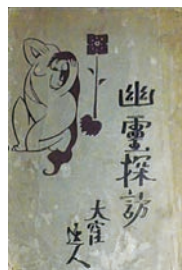 幽靈探訪
大窪逸人